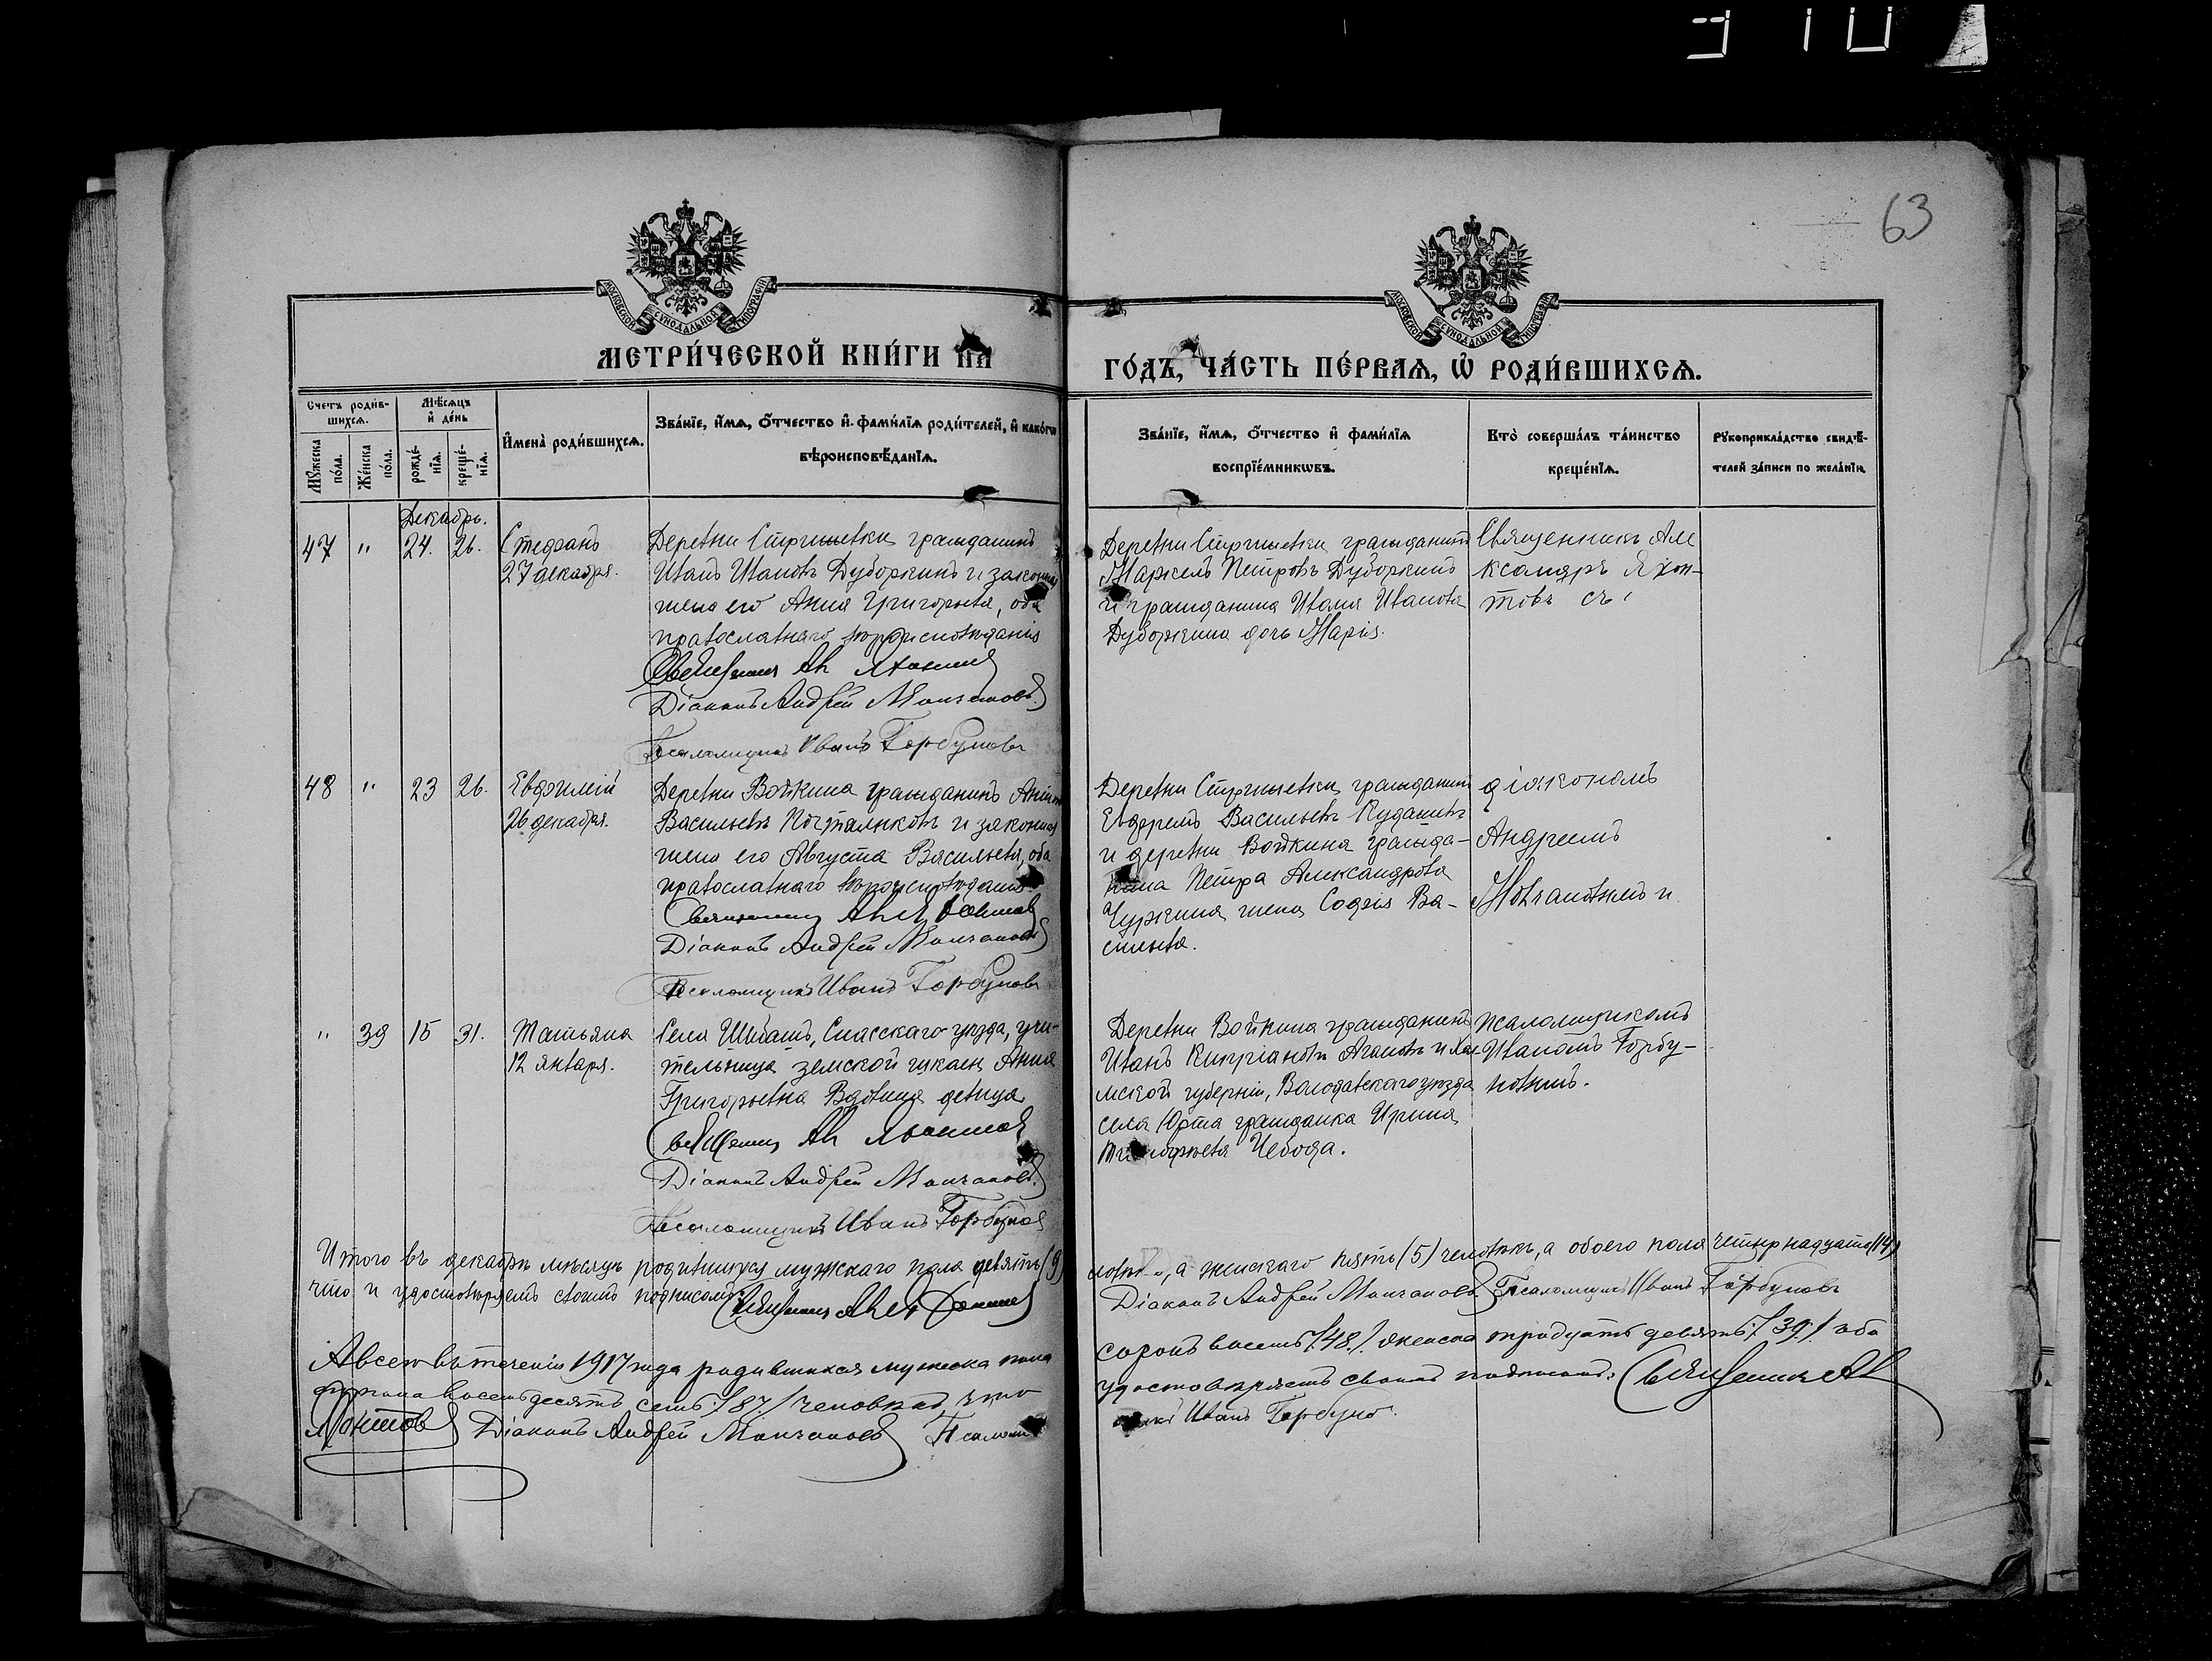 63
МОСКОВСКОЙ СѴНОДАЛЬНОЙ ТИПОГРАФІИ
МОСКОВСКОЙ СѴНОДАЛЬНОЙ ТИПОГРАФІИ
МЕТРИ́ЧЕСКОЙ КНИ́ГИ НА
ГО́ДЪ, ЧА́СТЬ ПЕ́РВАѦ, Ѽ РОДИ́ВШИХСѦ.
Счетъ роди́в-
шихсѧ.
Мꙋ́жеска
по́ла.
Же́нска
по́ла.
Мѣ́сѧцъ
и҆ де́нь
рожде́-
нїѧ.
креще́-
нїѧ.
И҆мена̀ роди́вшихсѧ.
Зва́нїе, и҆́мѧ, ѻ҆́тчество и҆ фами́лїѧ роди́телей, и҆ како́гѡ
вѣроисповѣ́данїѧ.
Зва́нїе, и҆́мѧ, ѻ҆́тчество и҆ фами́лїѧ
воспрїе́мникѡвъ.
Кто̀ соверша́лъ та́инство
креще́нїѧ.
Рꙋкоприкла́дство свидѣ́-
телей за́писи по жела́нїю.
Декабрь.
47 " 24. 26.
Стефанъ
27 декабря.
гражданинъ
Иванъ Ивановъ Дуборкинъ и законная
жена его Анна Григорьева, оба
православнаго вѣроисповѣданія
Священникъ Ал. Яхонтовъ
Діаконъ Андрей Молчановъ.
Псаломщикъ Иванъ Горбуновъ
гражданинъ
Петровъ Дуборкинъ
и гражданина Ивана Иванова
Дуборкина дочь Марія.
Священникъ Але
ксандръ Яхон-
товъ съ
48 " 23 26.
Евфимій
26 декабря.
Деревни Войкина гражданинъ
Васильевъ и законная
жена его Августа Васильева, оба
православнаго вѣроисповѣданія.
Священникъ Ал. Яхонтовъ
Діаконъ Андрей Молчановъ
Псаломщикъ Иванъ Горбуновъ
гражданинъ
Ефремъ Васильевъ
и деревни Войкина гражда-
нина Петра Александрова
Чуркина жена Софія Ва-
сильева.
діякономъ
Андреемъ
Молчановымъ и
" 39 15 31.
Татьяна
12 января.
Села Шибаши, Спасскаго уѣзда, учи-
тельница земской школы Анна
Григорьевна Вдовина девица
Священникъ Ал. Яхонтовъ
Діаконъ Андрей Молчановъ.
Псаломщикъ Иванъ Горбуновъ
Деревни Войкина гражданинъ
Иванъ Кипріановъ Агаповъ и Хол-
мской губерніи, Володавскаго уѣзда
села гражданка Ирина
псаломщикомъ
Иваномъ Горбу-
новымъ.
Итого въ декабрѣ мѣсяцѣ родившихся мужскаго пола девять (9)
а женскаго пять (5) человѣкъ, а обоего пола четырнадцать (14)
что и удостовѣряемъ своимъ подписомъ: Священникъ Ал. Яхонтовъ
Діаконъ Андрей Молчановъ Псаломщикъ Иванъ Горбуновъ
А всего въ теченіи 1917 года родившихся мужеска пола
сорокъ восемь /48./ женска тридцать девять /39/ обо
восемьдесятъ семь /87./ человѣкъ, что
удостовѣряемъ своимъ подписомъ: Священникъ Ал
Яхонтовъ Діаконъ Андрей Молчановъ Псалом
щикъ Иванъ Горбунов.